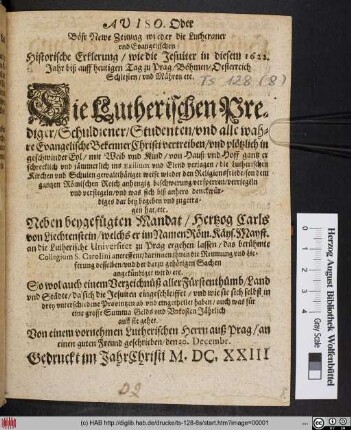 AVISO. Oder
Böse Newe Zeitung wieder die Lutheraner
vnd Evangelischen
Historische Erklerung / wie die Jesuiter in diesem 1622.
Jahr biß auff heutigen Tag zu Prag / Böhmen / Oesterreich
Schlesien / vnd Mähren etc.
Ts 128 (8)
Die Lutherischen Pre-
diger / Schuldiener / Studenten / vnd alle wah-
re Evangelische Bekenner Christi vertreiben / vnd plötzlich in
geschwinder Eyl / mit Weib vnd Kind / von Hauß vnd Hoff gantz er
schrecklich vnd jämmerlich ins Exilium vnd Elend verjagen / die Lutherischen
Kirchen vnd Schulen gewaltthätiger weise wieder den Religionsfrieden den dem
gantzen Römischen Reich anhengig beschwerung versperren / verriegeln
vnd versiegeln / vnd was sich biß anhero denckwür-
diges dar bey begeben vnd zugetra-
gen hat, etc.
Neben beygefügten Mandat / Hertzog Carls
von Liechtenstein / welchs er im Namen Röm. Käys. Mayst.
an die Lutherische Universitet zu Prag ergehen lassen / das berühmte
Collegium S. Carolini antreffent / darinnen ihnen die Reumung vnd lie-
ferung desselben / vnd der darzu gehörigen Sachen
angekündiget wird etc.
So wol auch einen Verzeichnüß aller Fürstenthümb / Land
vnd Städte / da sich die Jesuiten eingeschleiffet / vnd wie sie sich selbst in
drey unterschiedene Provintzen ab vnd eingetheilet haben / auch was für
eine grosse Summa Gelds vnd Vnkosten Jährlich
auff sie gehet.
Von einem vornehmen Lutherischen Herrn auß Prag / an
einen guten Freund geschrieben / den 20. Decembr.
Gedruckt im Jahr Christi M. DC. XXIII
Herzog August Bibliothek Wolfenbüttel
Gray Scale
(c) HAB http://diglib.hab.de/drucke/ts-128-8s/start.htm?image=00001